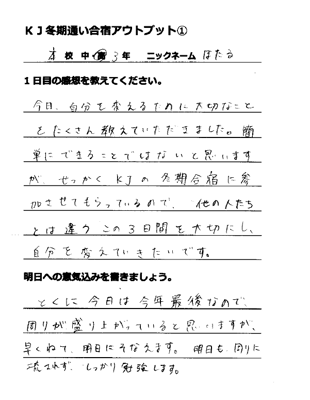 KJ冬期通い合宿アウトプット①
本 校 中・高 3 年 ニックネーム ほたる
1日目の感想を教えてください。
今日、自分を変えるために大切なこと
をたくさん教えていただきました。簡
単にできることではないと思います
が、せっかくKJの冬期合宿に参
加させてもらっているので、他の人たち
とは違うこの3日間を大切にし、
自分を変えていきたいです。
明日への意気込みを書きましょう。
とくに今日は今年最後なので、
周りが盛り上がっていると思いますが、
早くねて、明日にそなえます。明日も周りに
流されず、しっかり勉強します。